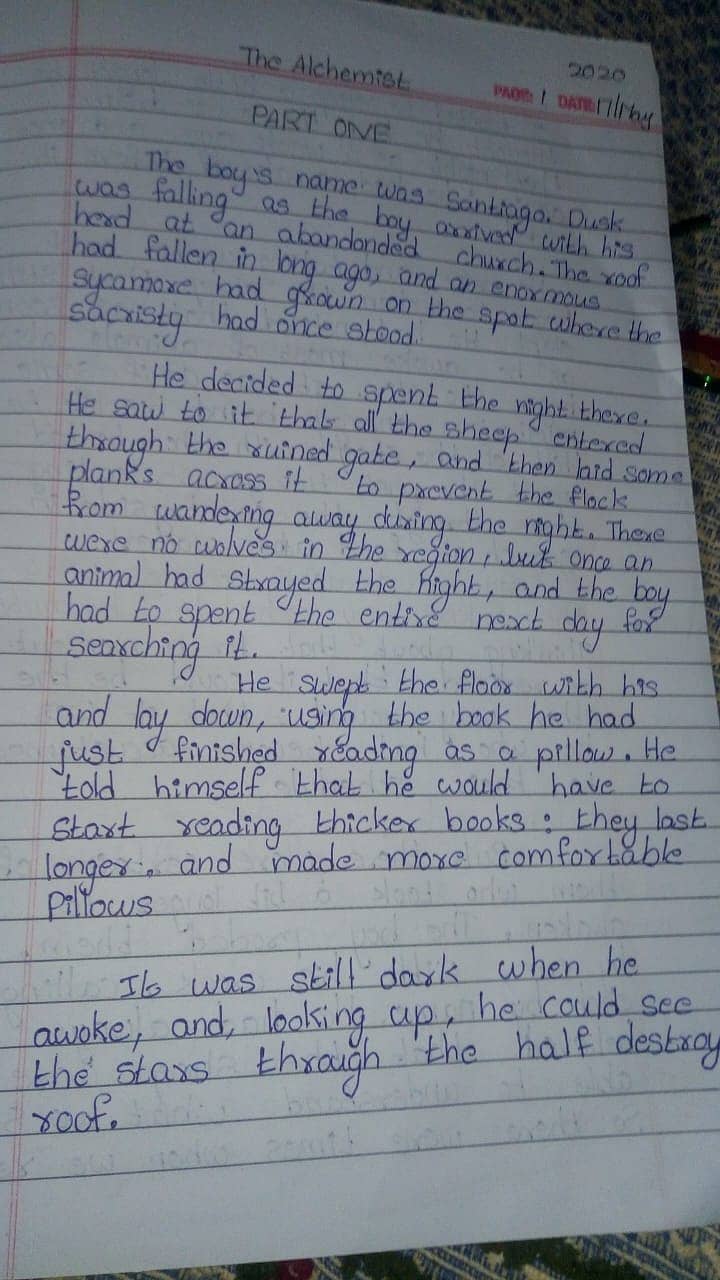 2020
The Alchemist
PAGE: 1 DATE:
PART ONE
The boy's name was Santiago. Dusk
was falling as the boy arrived with his
herd at an abandonded church. The roof
had fallen in long ago, and an enormous
sycamore had grown on the spot where the
sacristy had once stood.
He decided to spent the night there.
He saw to it that all the sheep entered
through the ruined gate, and then laid some
planks across it to prevent the flock
from wandering away during the night. There
were no wolves in the region, but once an
animal had strayed the night, and the boy
had to spent the entire next day for
searching it.
He swept the floor with his
and lay down, using the book he had
just finished reading as a pillow. He
told himself that he would have to
start reading thicker books: they last
longer, and made more comfortable
Pillows
It was still dark when he
awoke, and, looking up, he could see
the stars through the half destroy
roof.